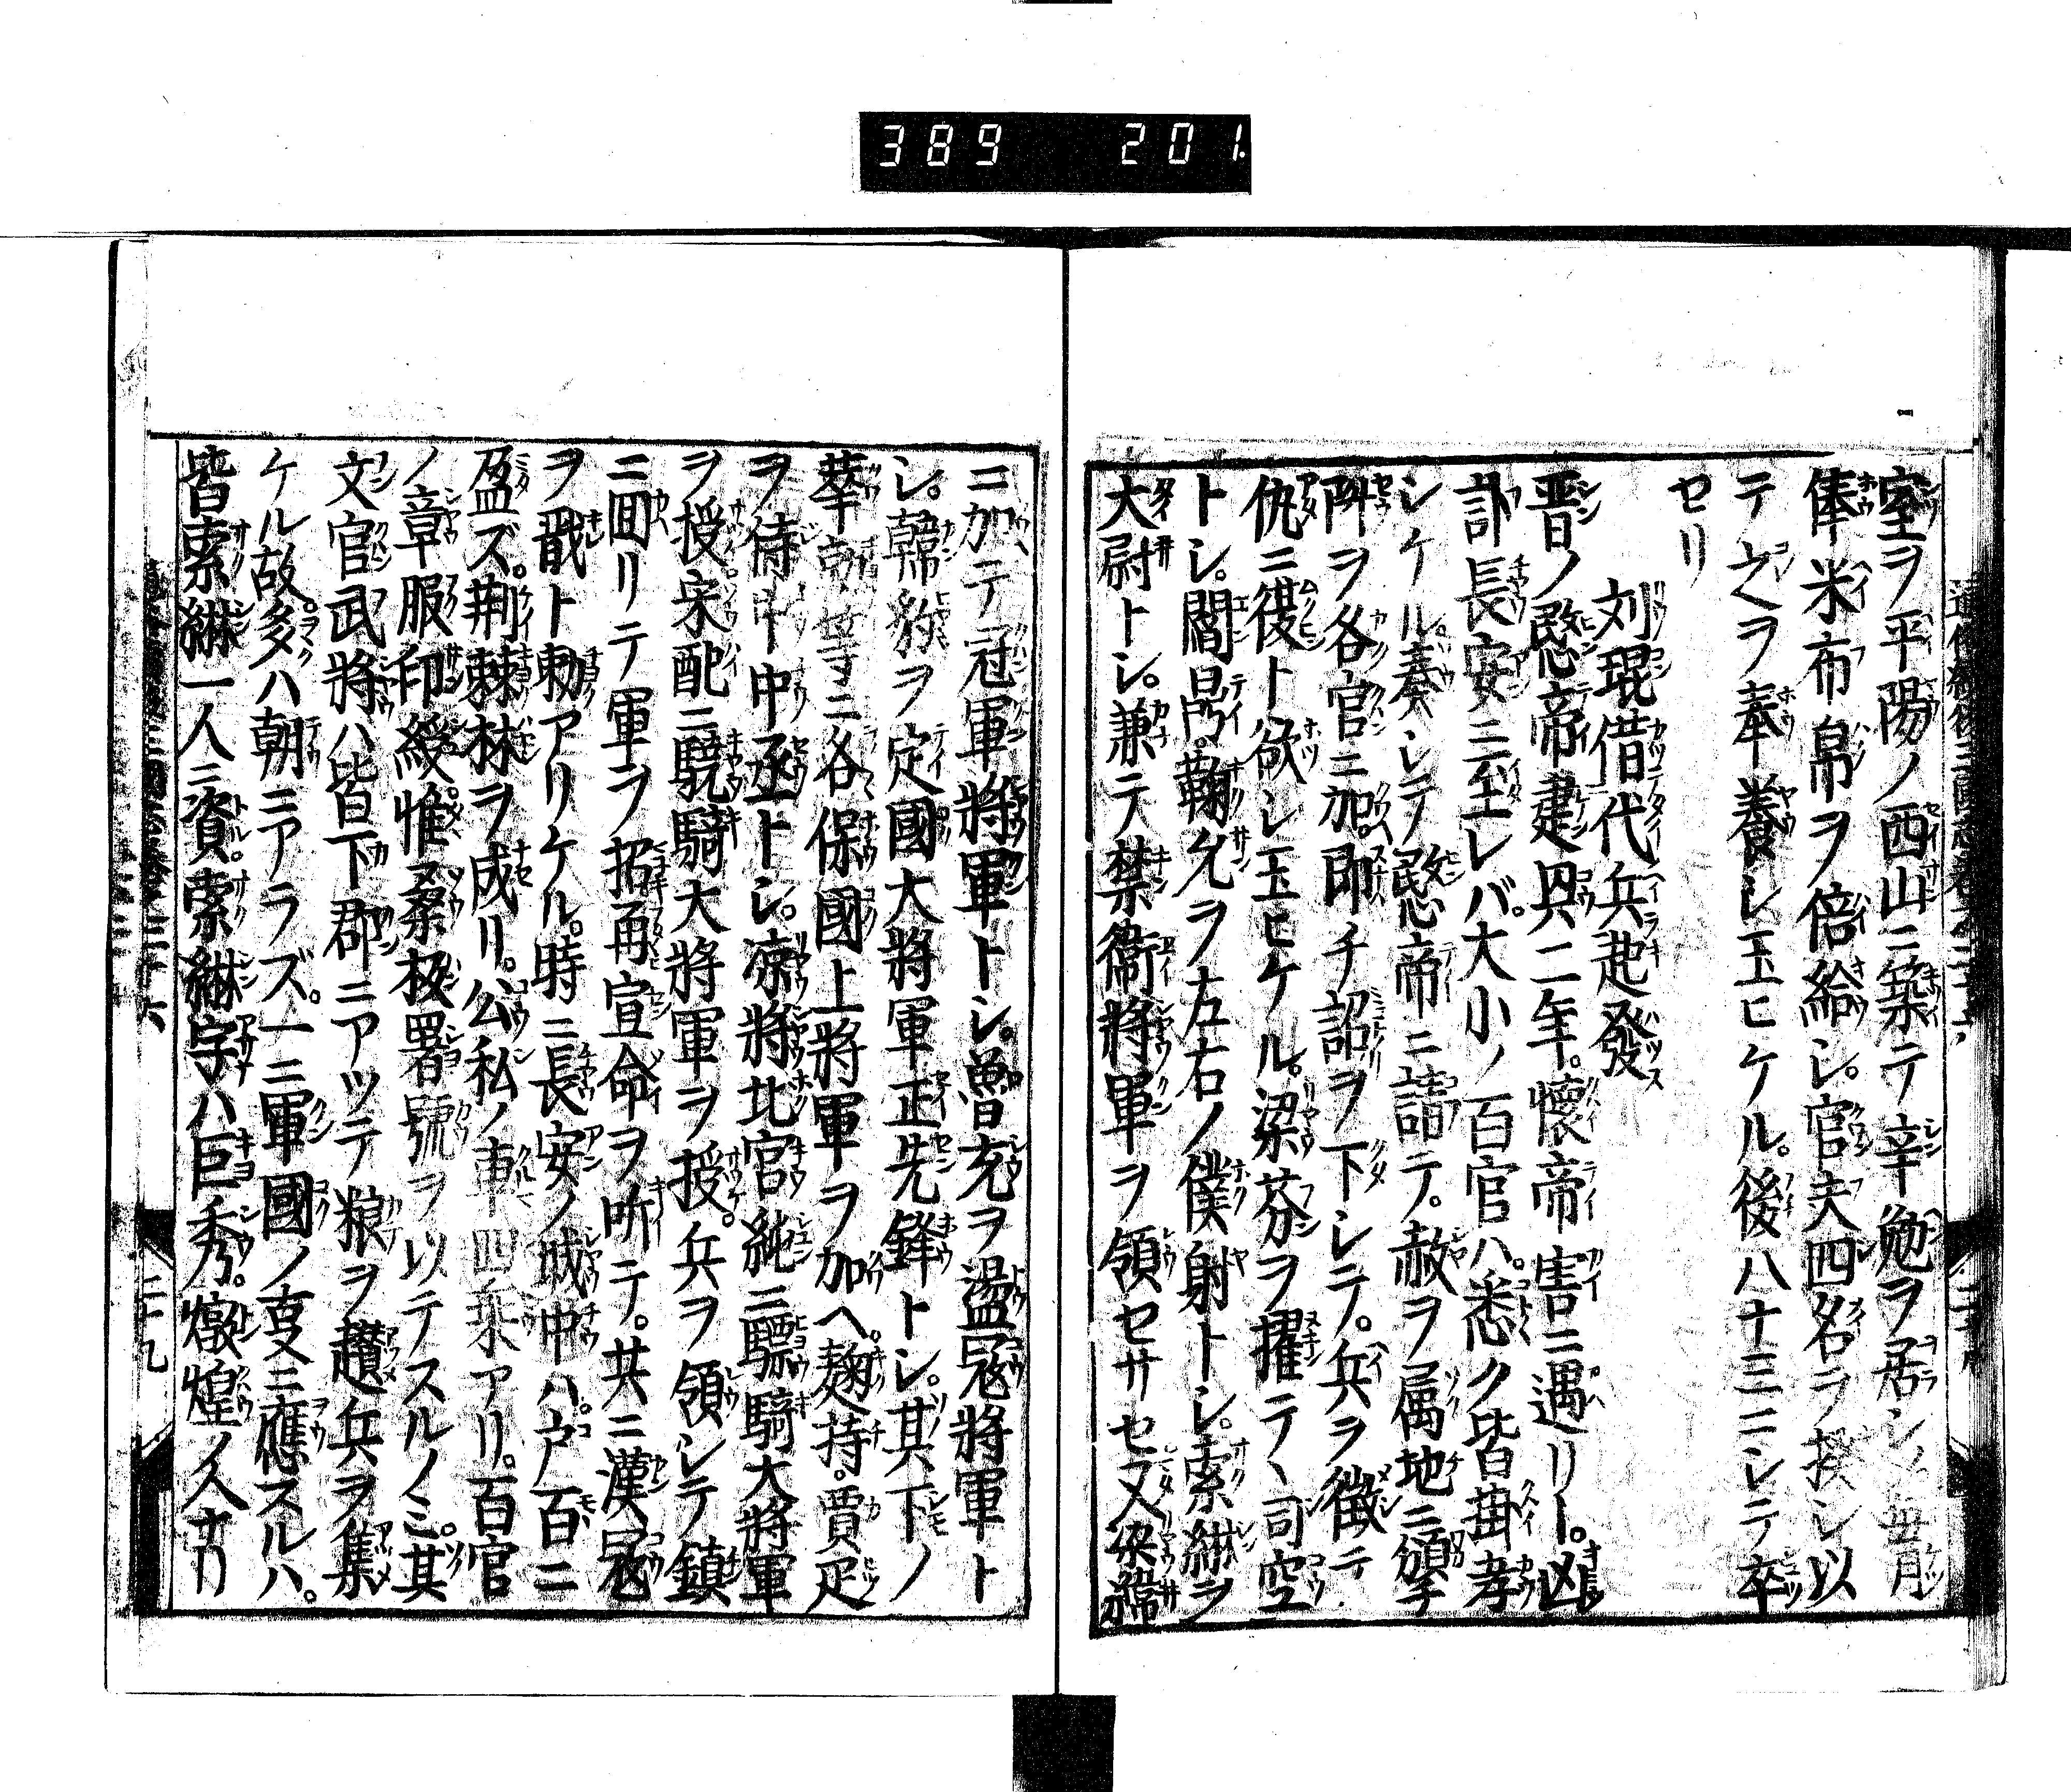 389 201
室ヲ平陽ノ西山ニ築テ辛勉ヲ居シメ毎月
俸米布帛ヲ倍給シ。官夫四名ヲ撥シ以
テ之ヲ奉養シ玉ヒケル。後八十三ニシテ卒
セリ
刘琨借代兵起發
晋ノ愍帝建興二年。懐帝害ニ遇リト。凶
訃長安ニ至レバ。大小ノ百官ハ。悉ク皆掛孝
シケル。奏シテ愍帝ニ請テ。赦ヲ属地ニ頒チ
陞ヲ各官ニ加。即チ詔ヲ下シテ。兵ヲ徴テ
仇ニ復ト欲シ玉ヒケル。梁芬ヲ擢テ丶司空
トシ。閻鼎。鞠允ヲ左右ノ僕射トシ。索綝ヲ
大尉トシ。兼テ禁衞將軍ヲ領セサセ又梁緯
ニ加テ冠軍將軍トシ。魯充ヲ盪冦將軍ト
シ。韓豹ヲ定國大將軍正先鋒トシ。其下ノ
華等ニ各保國上將軍ヲ加ヘ。麹持。賈疋
ヲ侍中中丞トシ。凉將北宮純ニ驃騎大將軍
ヲ授。宋配ニ驍騎大將軍ヲ授。兵ヲ領シテ鎮
ニ囬リテ軍ヲ招再宣命ヲ听テ。共ニ漢冦
ヲ戩ト勅アリケル。時ニ長安ノ城中ハ。戸百ニ
盈ズ。荆棘林ヲ成リ。公私ノ車四乗アリ。百官
ノ章服印綬。惟桑板署號ヲ以テスルノミ。其
文官武將ハ皆下郡ニアツテ粮ヲ趲兵ヲ集
ケル故。多ハ朝ニアラズ。一二軍國ノ叓ニ應スルハ。
皆索綝一人ニ資。索綝字ハ巨秀。燉煌ノ人ナリ
二十九